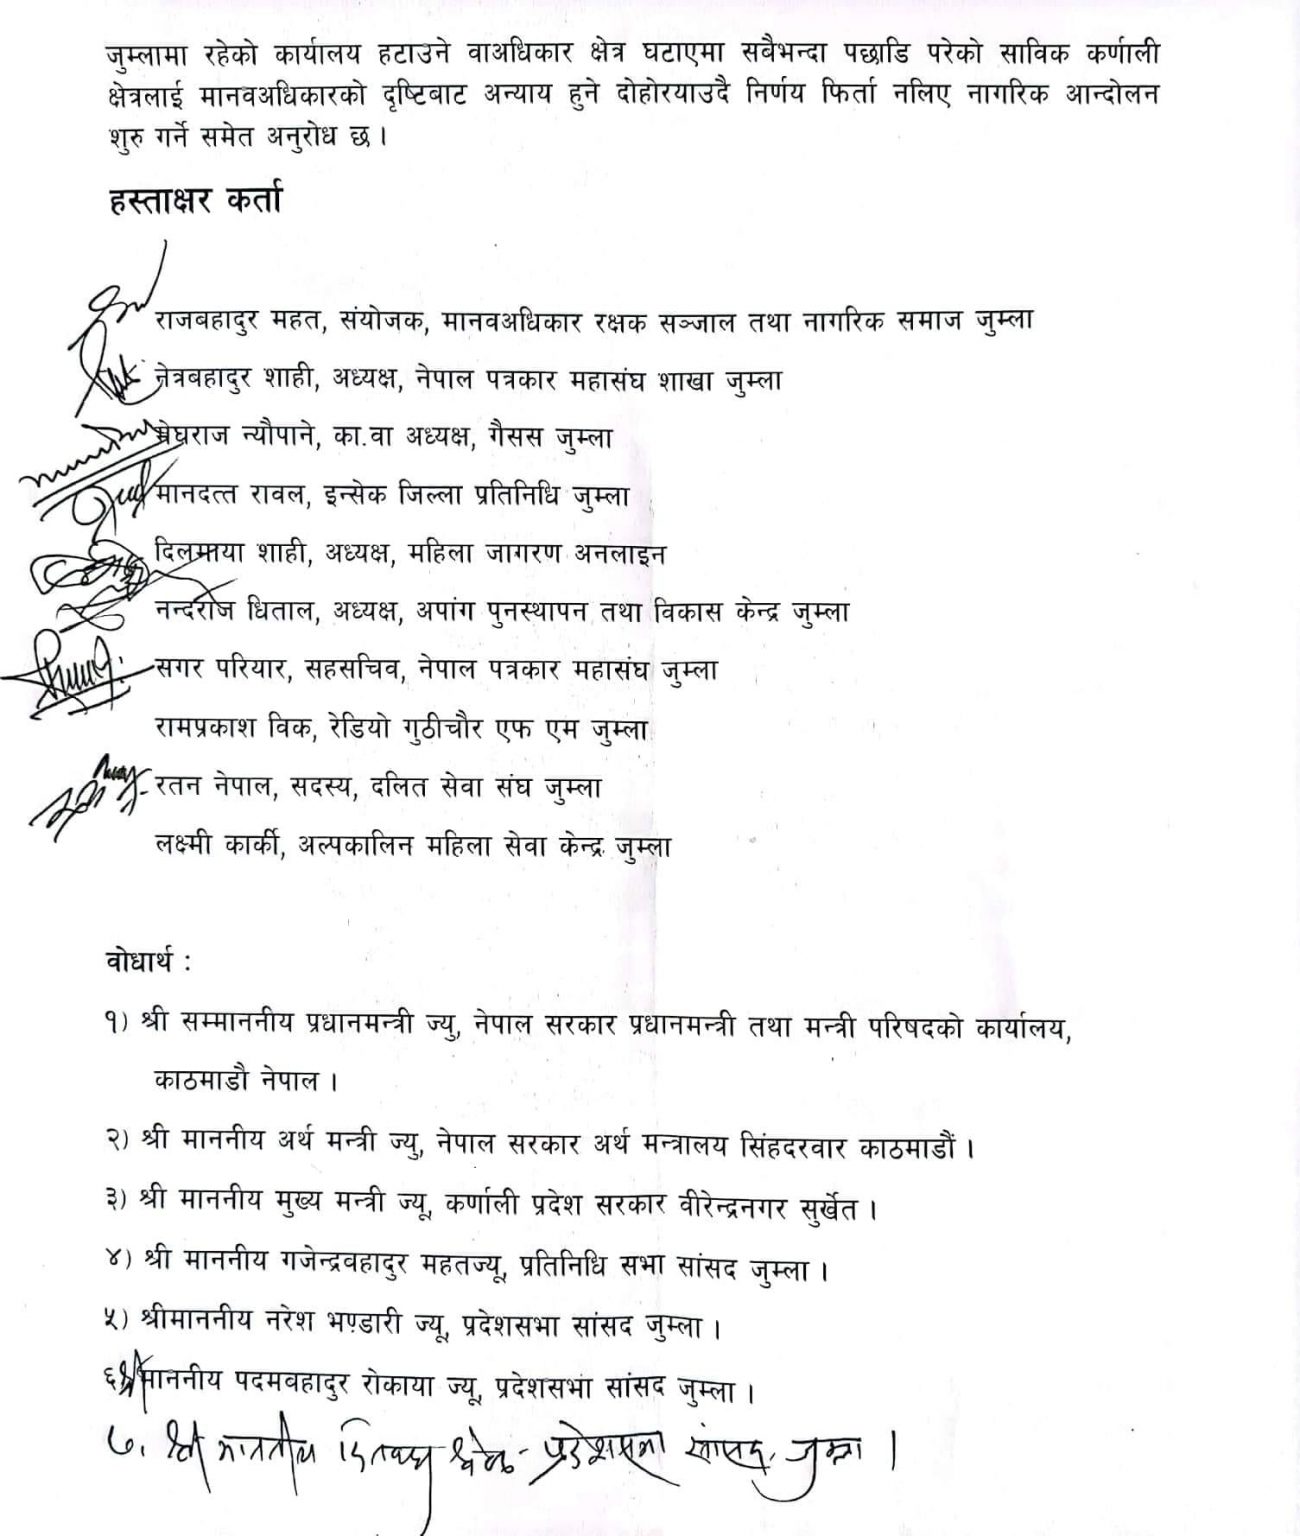 जुम्लामा रहेको कार्यालय हटाउने वाअधिकार क्षेत्र घटाएमा सबैभन्दा पछाडि परेको साविक कर्णाली
क्षेत्रलाई मानवअधिकारको दृष्टिबाट अन्याय हुने दोहोरयाउदै निर्णय फिर्ता नलिए नागरिक आन्दोलन
शुरु गर्ने समेत अनुरोध छ ।
हस्ताक्षर कर्ता
राजबहादुर महत, संयोजक, मानवअधिकार रक्षक सञ्जाल तथा नागरिक समाज जुम्ला
नेत्रबहादुर शाही, अध्यक्ष, नेपाल पत्रकार महासंघ शाखा जुम्ला
मेघराज न्यौपाने, का.वा अध्यक्ष, गैसस जुम्ला
मानदत्त रावल, इन्सेक जिल्ला प्रतिनिधि जुम्ला
दिलमाया शाही, अध्यक्ष, महिला जागरण अनलाइन
नन्दराज धिताल, अध्यक्ष, अपांग पुनस्थापन तथा विकास केन्द्र जुम्ला
सगर परियार, सहसचिव, नेपाल पत्रकार महासंघ जुम्ला
रामप्रकाश विक, रेडियो गुठीचौर एफ एम जुम्ला
रतन नेपाल, सदस्य, दलित सेवा संघ जुम्ला
लक्ष्मी कार्की, अल्पकालिन महिला सेवा केन्द्र जुम्ला
वोधार्थ :
१) श्री सम्माननीय प्रधानमन्त्री ज्यु, नेपाल सरकार प्रधानमन्त्री तथा मन्त्री परिषदको कार्यालय,
काठमाडौ नेपाल ।
२) श्री माननीय अर्थ मन्त्री ज्यु, नेपाल सरकार अर्थ मन्त्रालय सिंहदरवार काठमाडौं ।
३) श्री माननीय मुख्य मन्त्री ज्यू, कर्णाली प्रदेश सरकार वीरेन्द्रनगर सुर्खेत ।
४) श्री माननीय गजेन्द्रवहादुर महतज्यू, प्रतिनिधि सभा सांसद जुम्ला ।
५) श्रीमाननीय नरेश भण्डारी ज्यू, प्रदेशसभा सांसद जुम्ला ।
६) श्री माननीय पदमवहादुर रोकाया ज्यू, प्रदेशसभा सांसद जुम्ला ।
७. श्री माननीय प्रदेशसभा सांसद, जुम्ला ।